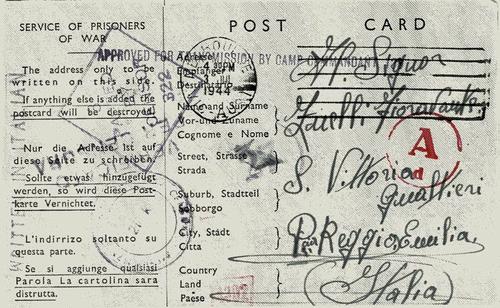 SERVICE OF PRISONERS
OF WAR
The address only to be
written on this side.
If anything else is added the
postcard will be destroyed.
Nur die Adresse ist auf
diese Seite zu schreiben.
Sollte etwas hinzugefügt
werden, so wird diese Post-
karte Vernichtet.
L'indirrizo soltanto su
questa parte.
Se si aggiunge qualsiasi
Parola La cartolina sara
distrutta.
POST CARD
APPROVED FOR TRANSMISSION BY CAMP COMMANDANT
MELBOURNE
4 30PM
JUL
1944
Name and Surname
Vor- und Zuname
Cognome e Nome
Street, Strasse
Strada
Suburb, Stadtteil
Sobborgo
City, Städt
Citta
Country
Land
Paese
Al Signor
Zuelli Fioravante
S. Vittoria
Gualtieri
Reggio Emilia
(Italia)
A
d
WRITTEN IN ITALIAN